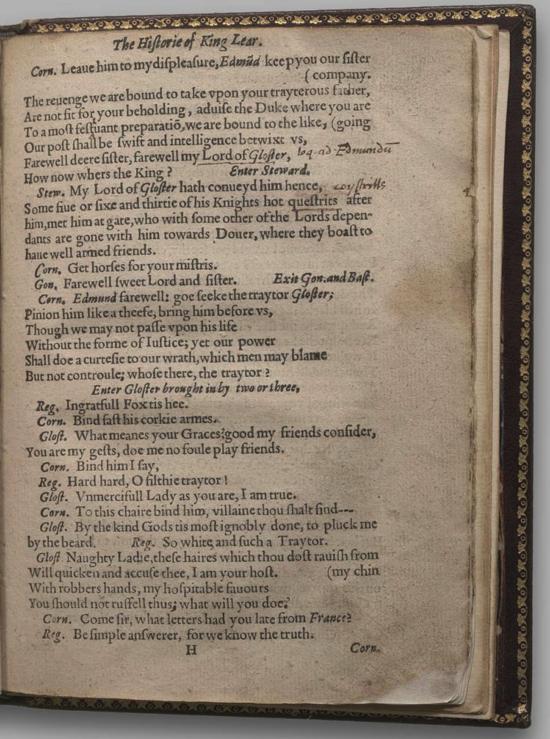 The Historie of King Lear.
Corn. Leaue him to my displeasure, Edmũd keep you our sister
(company.
The reuenge we are bound to take vpon your trayterous father,
Are not fit for your beholding, aduise the Duke where you are
To a most festuant preparatiõ, we are bound to the like, (going
Our post shall be swift and intelligence betwixt vs,
Farewell deere sister, farewell my Lord of Gloster,
How now whers the King? Enter Steward.
Stew. My Lord of Gloster hath conueyd him hence,
Some fiue or sixe and thirtie of his Knights hot questrits after
him, met him at gate, who with some other of the Lords depen-
dants are gone with him towards Douer, where they boast to
haue well armed friends.
Corn. Get horses for your mistris.
Gon. Farewell sweet Lord and sister. Exit Gon. and Bast.
Corn. Edmund farewell: goe seeke the traytor Gloster;
Pinion him like a theefe, bring him before vs,
Though we may not passe vpon his life
Without the forme of Iustice; yet our power
Shall doe a curtesie to our wrath, which men may blame
But not controule; whose there, the traytor?
Enter Gloster brought in by two or three,
Reg. Ingratfull Fox tis hee.
Corn. Bind fast his corkie armes.
Glost. What meanes your Graces? good my friends consider,
You are my gests, doe me no foule play friends.
Corn. Bind him I say,
Reg. Hard hard, O filthie traytor!
Glost. Vnmercifull Lady as you are, I am true.
Corn. To this chaire bind him, villaine thou shalt find---
Glost. By the kind Gods tis most ignobly done, to pluck me
by the beard. Reg. So white and such a Traytor.
Glost Naughty Ladie, these haires which thou dost rauish from
Will quicken and accuse thee, I am your host. (my chin
With robbers hands, my hospitable fauours
You should not ruffell thus; what will you doe?
Corn. Come sir, what letters had you late from France?
Reg. Be simple answerer, for we know the truth.
H Corn.